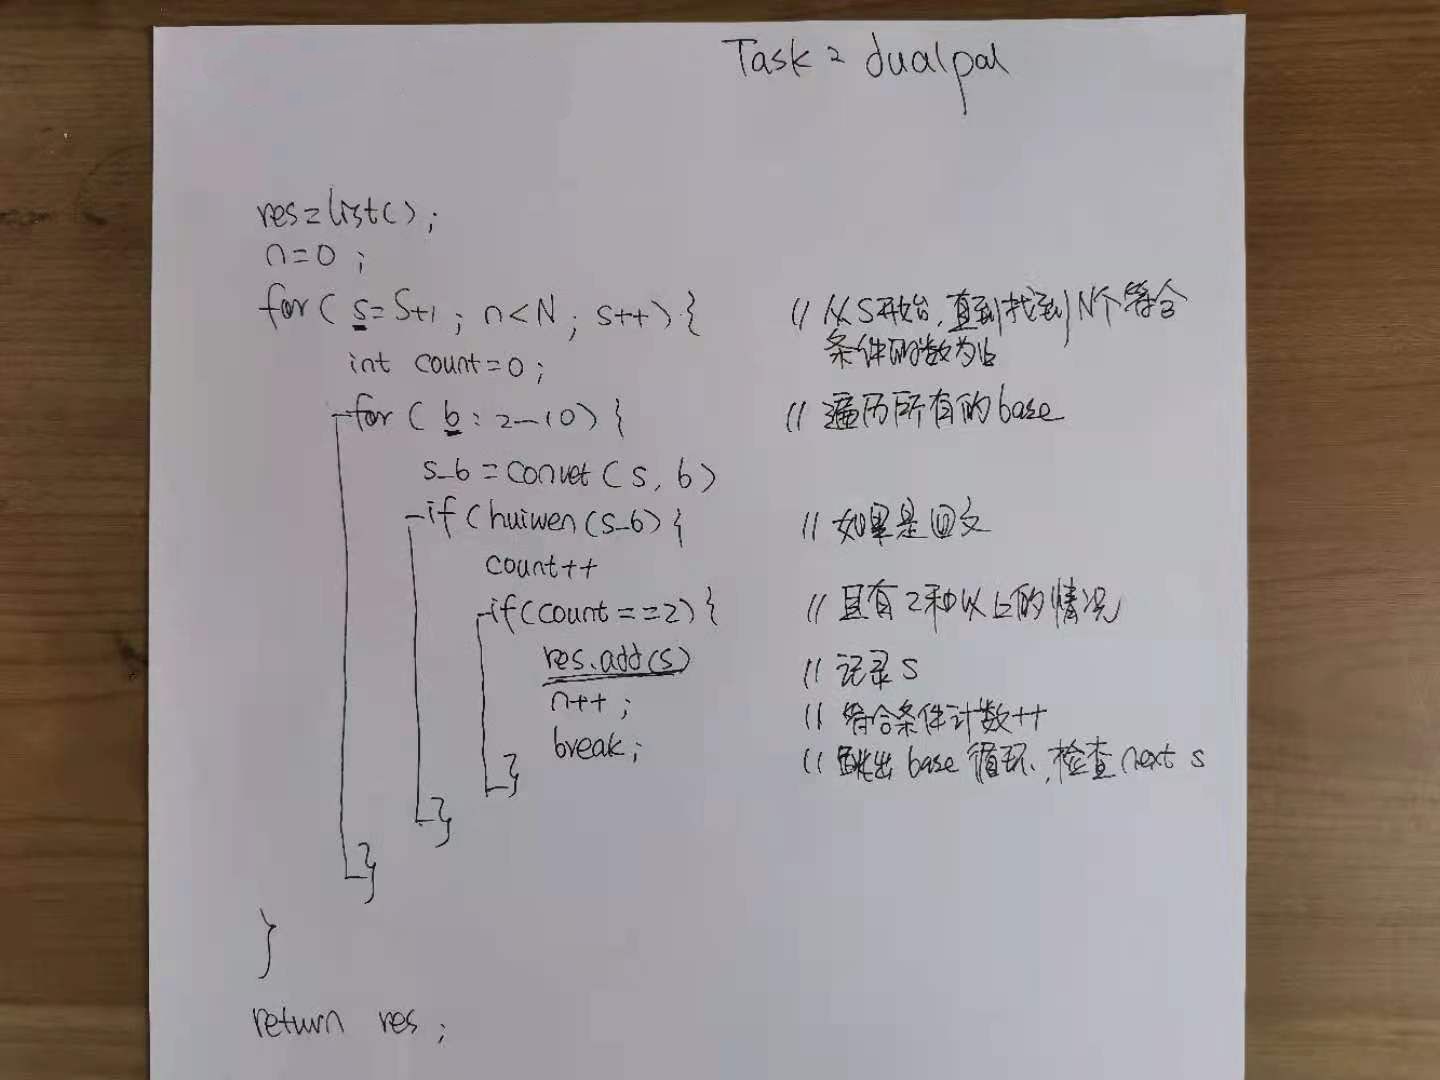 Task = dualpal
res=list();
n=0;
for( s=S+1; n<N; s++){ // 从S开始,直到找到N个符合
条件的数为止
int count=0;
for( b: 2—10){ // 遍历所有的base
s_b = convet(s,b)
if(huiwen(s_b){ // 如果是回文
count++
if(count==2){ // 且有2种以上的情况
res.add(s) // 记录s
n++; // 符合条件计数++
break; // 跳出base循环,检查next s
}
}
}
}
return res;